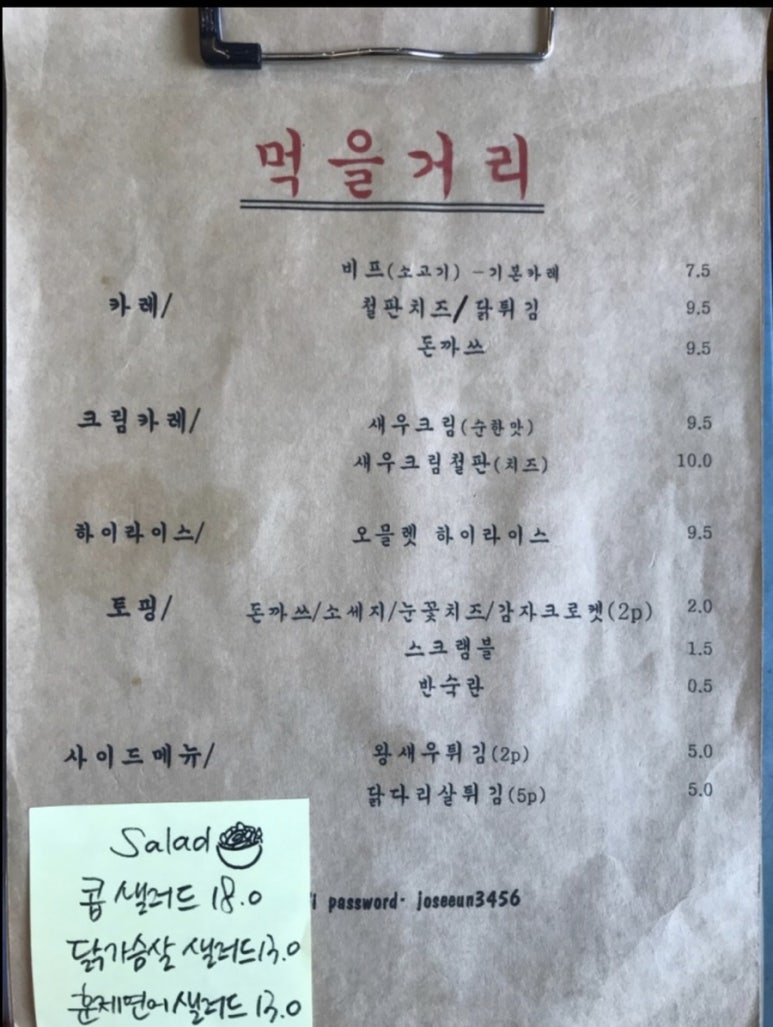 먹을거리
비프(소고기) -기본카레 7.5
카레/ 철판치즈/닭튀김 9.5
돈까쓰 9.5
크림카레/ 새우크림(순한맛) 9.5
새우크림철판(치즈) 10.0
하이라이스/ 오믈렛 하이라이스 9.5
토핑/ 돈까쓰/소세지/눈꽃치즈/감자크로켓(2p) 2.0
스크램블 1.5
반숙란 0.5
사이드메뉴/ 왕새우튀김(2p) 5.0
닭다리살튀김(5p) 5.0
password· joseeun3456
Salad
콥 샐러드 18.0
닭가슴살 샐러드 13.0
훈제연어샐러드 13.0